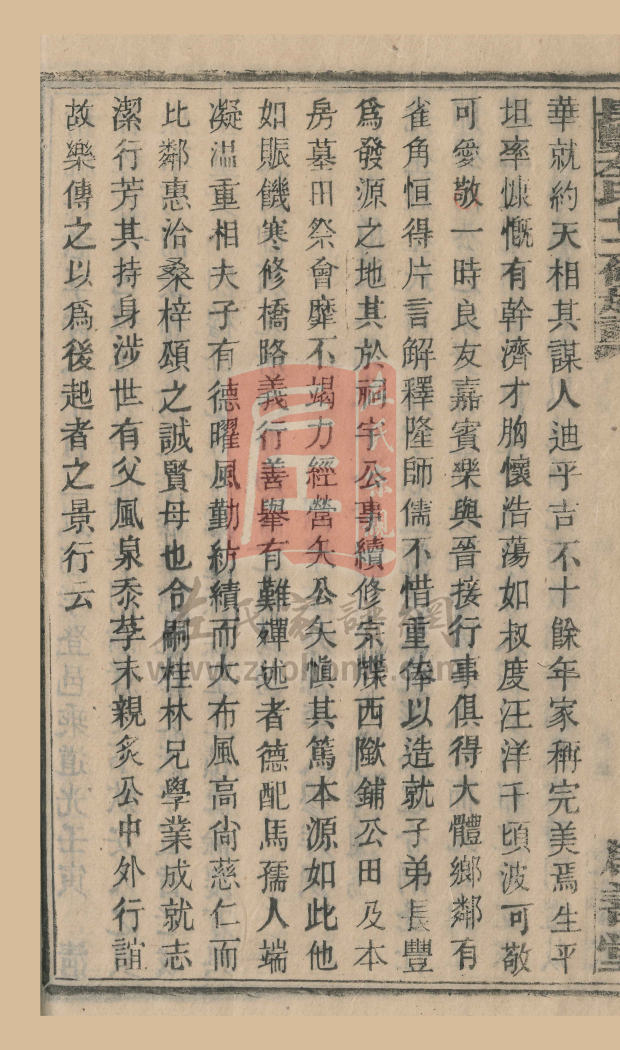 華就約天相其謀人迪乎吉不十餘年家稱完美焉生平
坦率慷慨有幹濟才胸懷浩蕩如叔度汪洋千頃波可敬
可愛敬一時良友嘉賓樂與晉接行事俱得大體鄉鄰有
雀角恒得片言解釋隆師儒不惜重俸以造就子弟長豐
爲發源之地其於祠宇公事續修宗牒西歐鋪公田及本
房墓田祭會靡不竭力經營矢公矢慎其篤本源如此他
如賑饑寒修橋路義行善舉有難殫述者德配馬孺人端
凝溫重相夫子有德曜風勤紡績而大布風高尙慈仁而
比鄰惠洽桑梓頌之誠賢母也令嗣桂林兄學業成就志
潔行芳其持身涉世有父風泉忝莩末親炙公中外行誼
故樂傳之以爲後起者之景行云
左氏家譜網